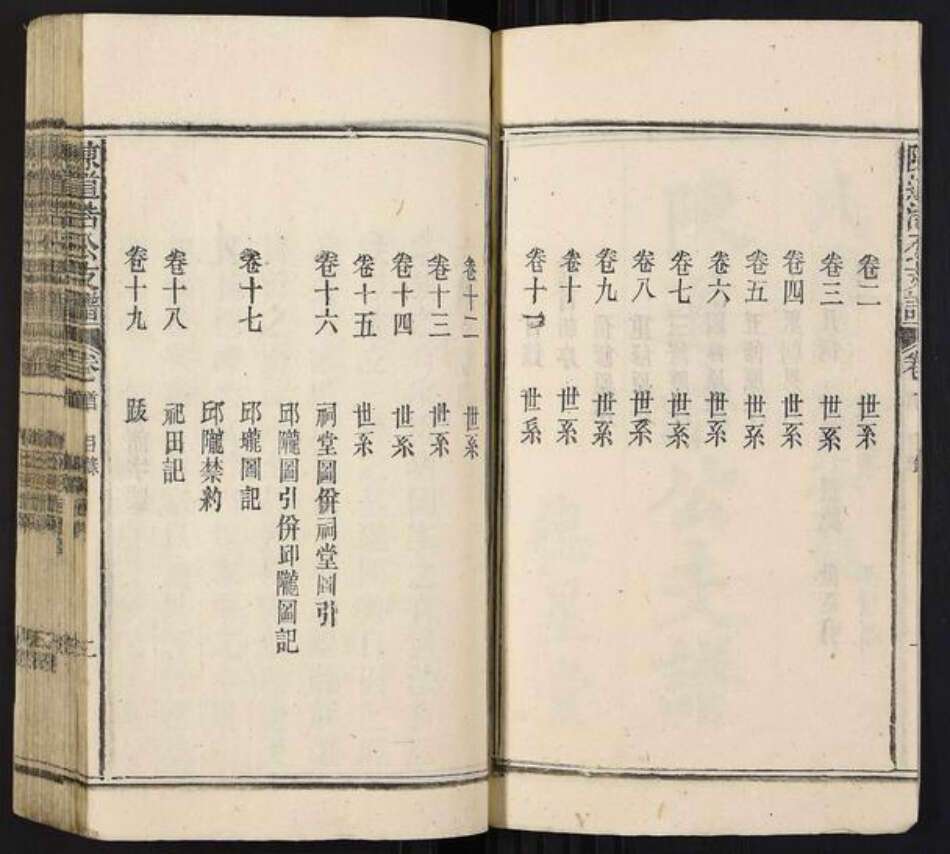 卷二 世系
卷三 世系
卷四 世系
卷五 世系
卷六 世系
卷七 世系
卷八 世系
卷九 世系
卷十 世系
卷十一 世系
卷十二 世系
卷十三 世系
卷十四 世系
卷十五 世系
卷十六 祠堂圖併祠堂圖引
邱隴圖引併邱隴圖記
卷十七 邱壠圖記
邱隴禁約
卷十八 祀田記
卷十九 跋
卷首 目錄 二